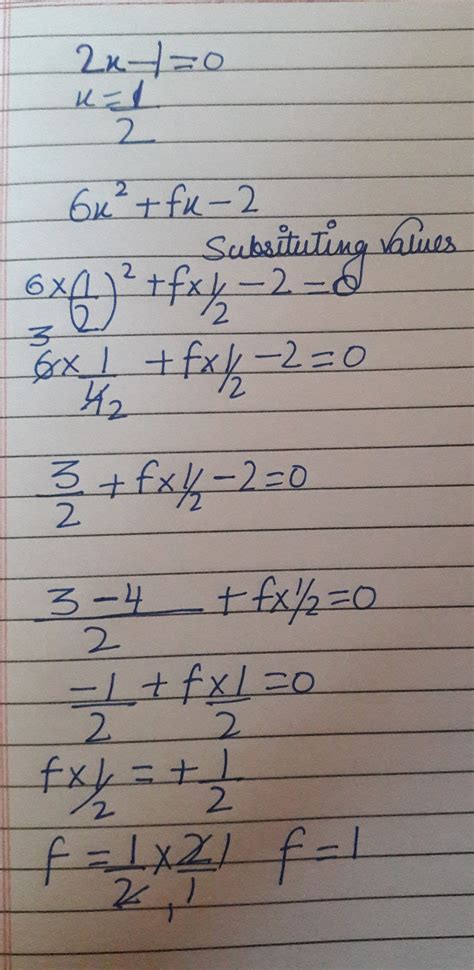 2x-1=0
x=1/2
6x²+fx-2
Subsituting values
6×(1/2)²+f×1/2-2=0
3
6×1/4 2+f×1/2-2=0
3/2+f×1/2-2=0
3-4/2+f×1/2=0
-1/2+f×1/2=0
f×1/2=+1/2
f=1/2 1×2/1 1 f=1